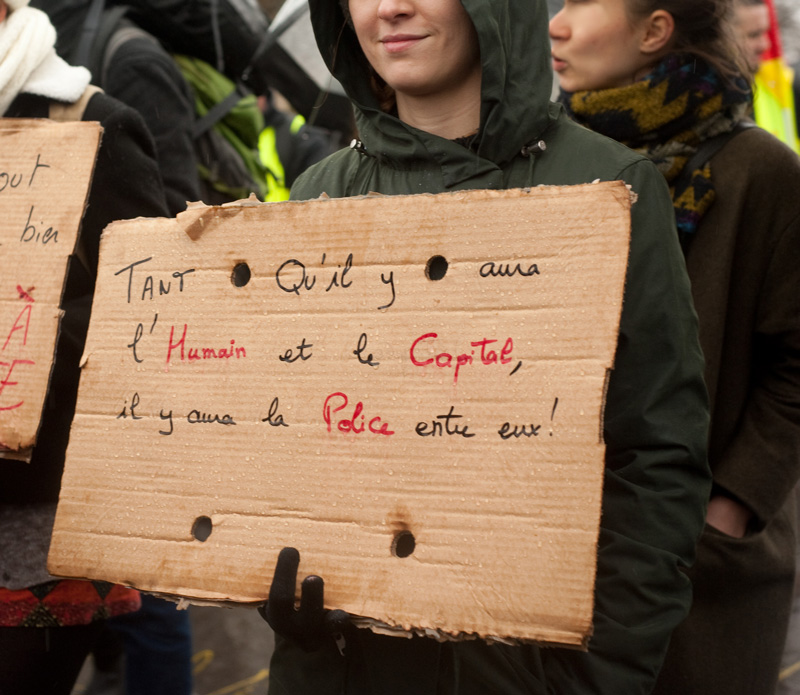 out
bien
À
TANT Qu'il y aura
l'Humain et le Capital,
il y aura la Police entre eux!